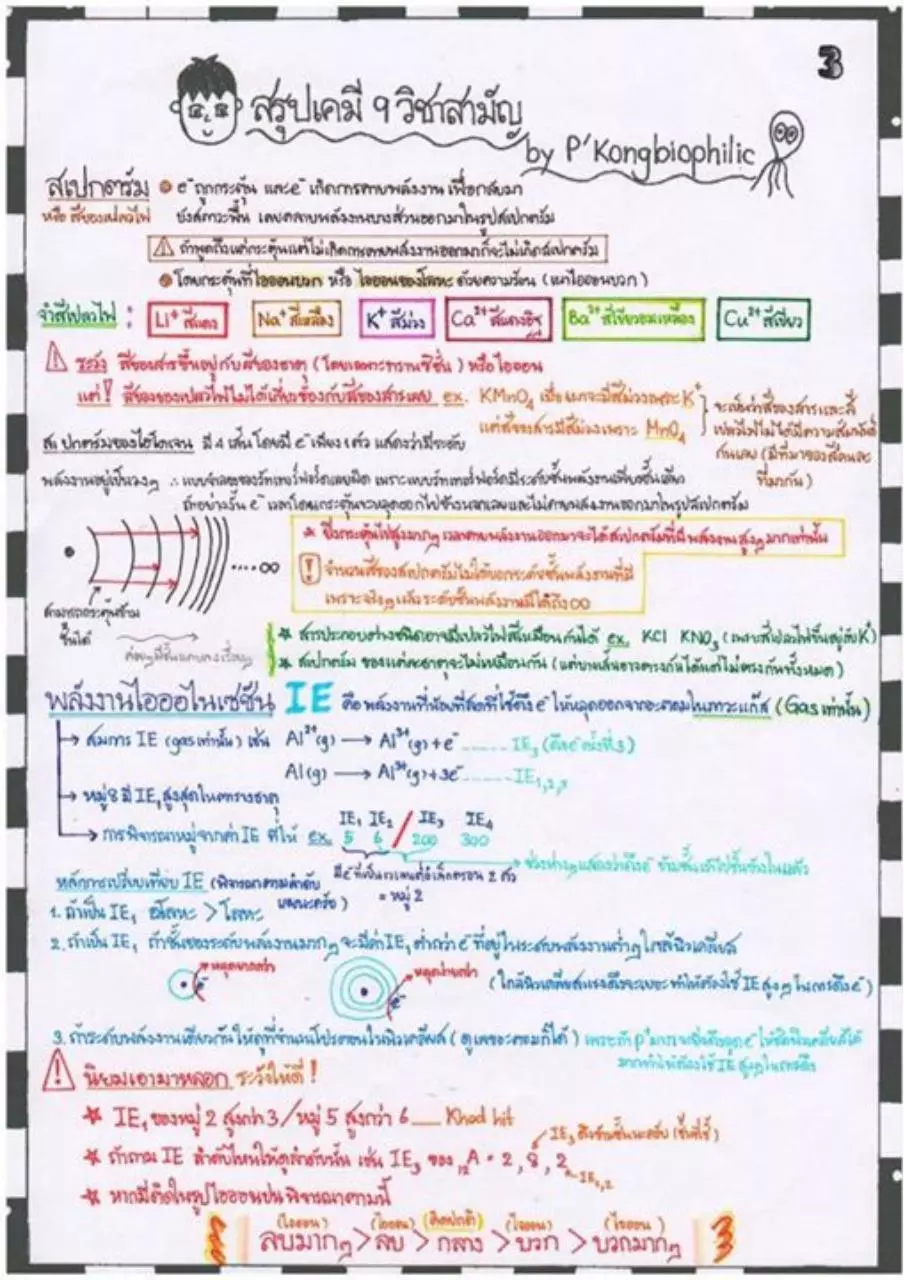 3
สรุปเคมี 9 วิชาสามัญ
by P'Kongbiophilic
สเปกตรัม e⁻ ถูกกระตุ้น และ e⁻ เกิดการคายพลังงาน เพื่อกลับมา
หรือ สีของเปลวไฟ ยังสภาวะพื้น เลยคายพลังงานบางส่วนออกมาในรูปสเปกตรัม
ถ้าพูดถึงแค่กระตุ้นแต่ไม่เกิดการคายพลังงานออกมาก็จะไม่เกิดสเปกตรัม
โดยกระตุ้นที่ไอออนบวก หรือ ไอออนของโลหะ ด้วยความร้อน (เผาไอออนบวก)
จำสีเปลวไฟ : Li⁺ สีแดง Na⁺ สีเหลือง K⁺ สีม่วง Ca²⁺ สีแดงอิฐ Ba²⁺ สีเขียวอมเหลือง Cu²⁺ สีเขียว
! ระวัง สีของสารขึ้นอยู่กับสีของธาตุ (โดยเฉพาะทรานซิชั่น) หรือไอออน
แต่! สีของเปลวไฟไม่ได้เกี่ยวข้องกับสีของสารเลย ex. KMnO₄ เมื่อเผาจะมีสีม่วงเพราะ K⁺
แต่สีของสารมีสีม่วงเพราะ MnO₄
จะเห็นว่าสีของสารและสี
เปลวไฟไม่ได้มีความสัมพันธ์
กันเลย (มีที่มาของสีคนละ
ที่มากัน)
สเปกตรัมของไฮโดรเจน มี 4 เส้นโดยมี e⁻ เพียง 1 ตัว แสดงว่ามีระดับ
พลังงานอยู่เป็นวงๆ ∴ แบบจำลองของรัทเทอร์ฟอร์ดเลยผิด เพราะแบบรัทเทอร์ฟอร์ดมีระดับชั้นพลังงานเพียงชั้นเดียว
ถ้าอย่างงั้น e⁻ เวลาโดนกระตุ้นจะหลุดออกไปข้างนอกเลยและไม่คายพลังงานออกมาในรูปสเปกตรัม
★ ยิ่งกระตุ้นไปสูงมากๆ เวลาคายพลังงานออกมาจะได้สเปกตรัมที่มีพลังงานสูงๆ มากเท่านั้น
....∞
! จำนวนสีของสเปกตรัมไม่ได้บอกระดับชั้นพลังงานที่มี
เพราะจริงๆ แล้วระดับชั้นพลังงานมีได้ถึง ∞
สามารถกระตุ้นข้าม
ชั้นได้
ค่อยๆ มีชั้นแคบลงเรื่อยๆ
★ สารประกอบต่างชนิดอาจมีเปลวไฟสีเหมือนกันได้ ex. KCl KNO₃ (เพราะสีเปลวไฟขึ้นอยู่กับ K⁺)
★ สเปกตรัม ของแต่ละธาตุจะไม่เหมือนกัน (แต่บางเส้นอาจตรงกันได้แต่ไม่ตรงกันทั้งหมด)
พลังงานไอออไนเซชัน IE คือ พลังงานที่น้อยที่สุดที่ใช้ดึง e⁻ ให้หลุดออกจากอะตอมในภาวะแก๊ส (Gas เท่านั้น)
สมการ IE (gas เท่านั้น) เช่น Al²⁺(g) → Al³⁺(g) + e⁻ ........ IE₃ (ดึง e⁻ ครั้งที่ 3)
Al(g) → Al³⁺(g) + 3e⁻ ........ IE₁,₂,₃
หมู่ 8 มี IE₁ สูงสุดในตารางธาตุ
IE₁ IE₂ / IE₃ IE₄
การพิจารณาหมู่จากค่า IE ที่ให้ ex. 5 6 / 200 300
ช่วงห่างๆ แสดงว่าดึง e⁻ ข้ามชั้นเข้าไปชั้นข้างในแล้ว
มี e⁻ ที่เป็นเวเลนต์อิเล็กตรอน 2 ตัว
= หมู่ 2
หลักการเปรียบเทียบ IE (พิจารณาตามลำดับ
และนะครับ)
1. ถ้าเป็น IE₁ อโลหะ > โลหะ
2. ถ้าเป็น IE₁ ถ้าชั้นของระดับพลังงานมากๆ จะมีค่า IE₁ ต่ำกว่า e⁻ ที่อยู่ในระดับพลังงานต่ำๆ ใกล้นิวเคลียส
หลุดยากกว่า
e⁻
หลุดง่ายกว่า
e⁻
(ใกล้นิวเคลียสแรงดึงจะเยอะ ทำให้ต้องใช้ IE สูงๆ ในการดึง e⁻)
3. ถ้าระดับพลังงานเดียวกันให้ดูที่จำนวนโปรตอนในนิวเคลียส (ดูเลขอะตอมก็ได้)
! นิยมเอามาหลอก ระวังให้ดี!
★ IE₁ ของหมู่ 2 สูงกว่า 3 / หมู่ 5 สูงกว่า 6 ...... Khod hit
★ ถ้าถาม IE ลำดับไหนให้ดูลำดับนั้น เช่น IE₃ ของ ₁₂A = 2, 8, 2
IE₁,₂
★ หากมีติดในรูปไอออนปนพิจารณาตามนี้
(ไอออน) (ไอออน) (ปกติ) (ไอออน) (ไอออน)
ลบมากๆ > ลบ > กลาง > บวก > บวกมากๆ